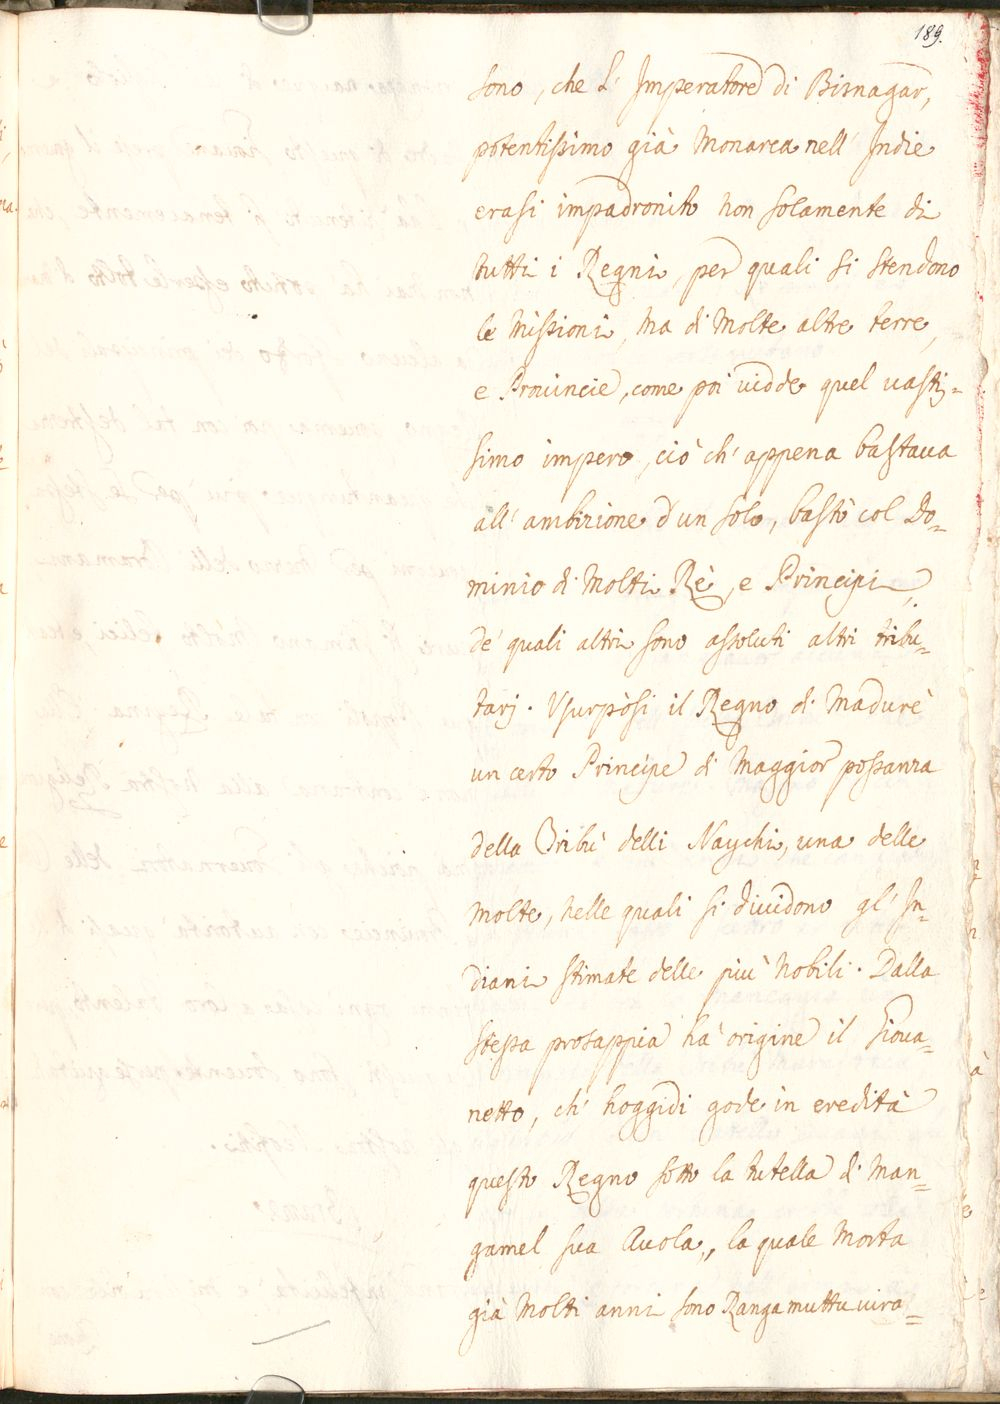 189.
sono, che l' Imperatore di Bisnagar,
potentissimo già Monarca nell' Indie
erasi impadronito non solamente di
tutti i Regni, per quali si stendono
le Missioni, ma di molte altre terre,
e Prouincie, come poi uidde quel uasti=
simo impero, ciò ch' appena bastaua
all' ambizione d'un solo, bastò col Do=
minio di molti Rè, e Principi,
de' quali altri sono assoluti altri tribu=
tarj. Vsurpòsi il Regno di Madurè
un certo Principe di Maggior possanza
della Tribù delli Naychi, una delle
molte, nelle quali si diuidono gl' In=
diani stimate delle più nobili. Dalla
stessa prosappia hà origine il Gioua=
netto, ch' hoggidì gode in eredità
questo Regno sotto la tutella di Man=
gamel sua Auola, la quale morta
già molti anni sono Ranga muttu uira=